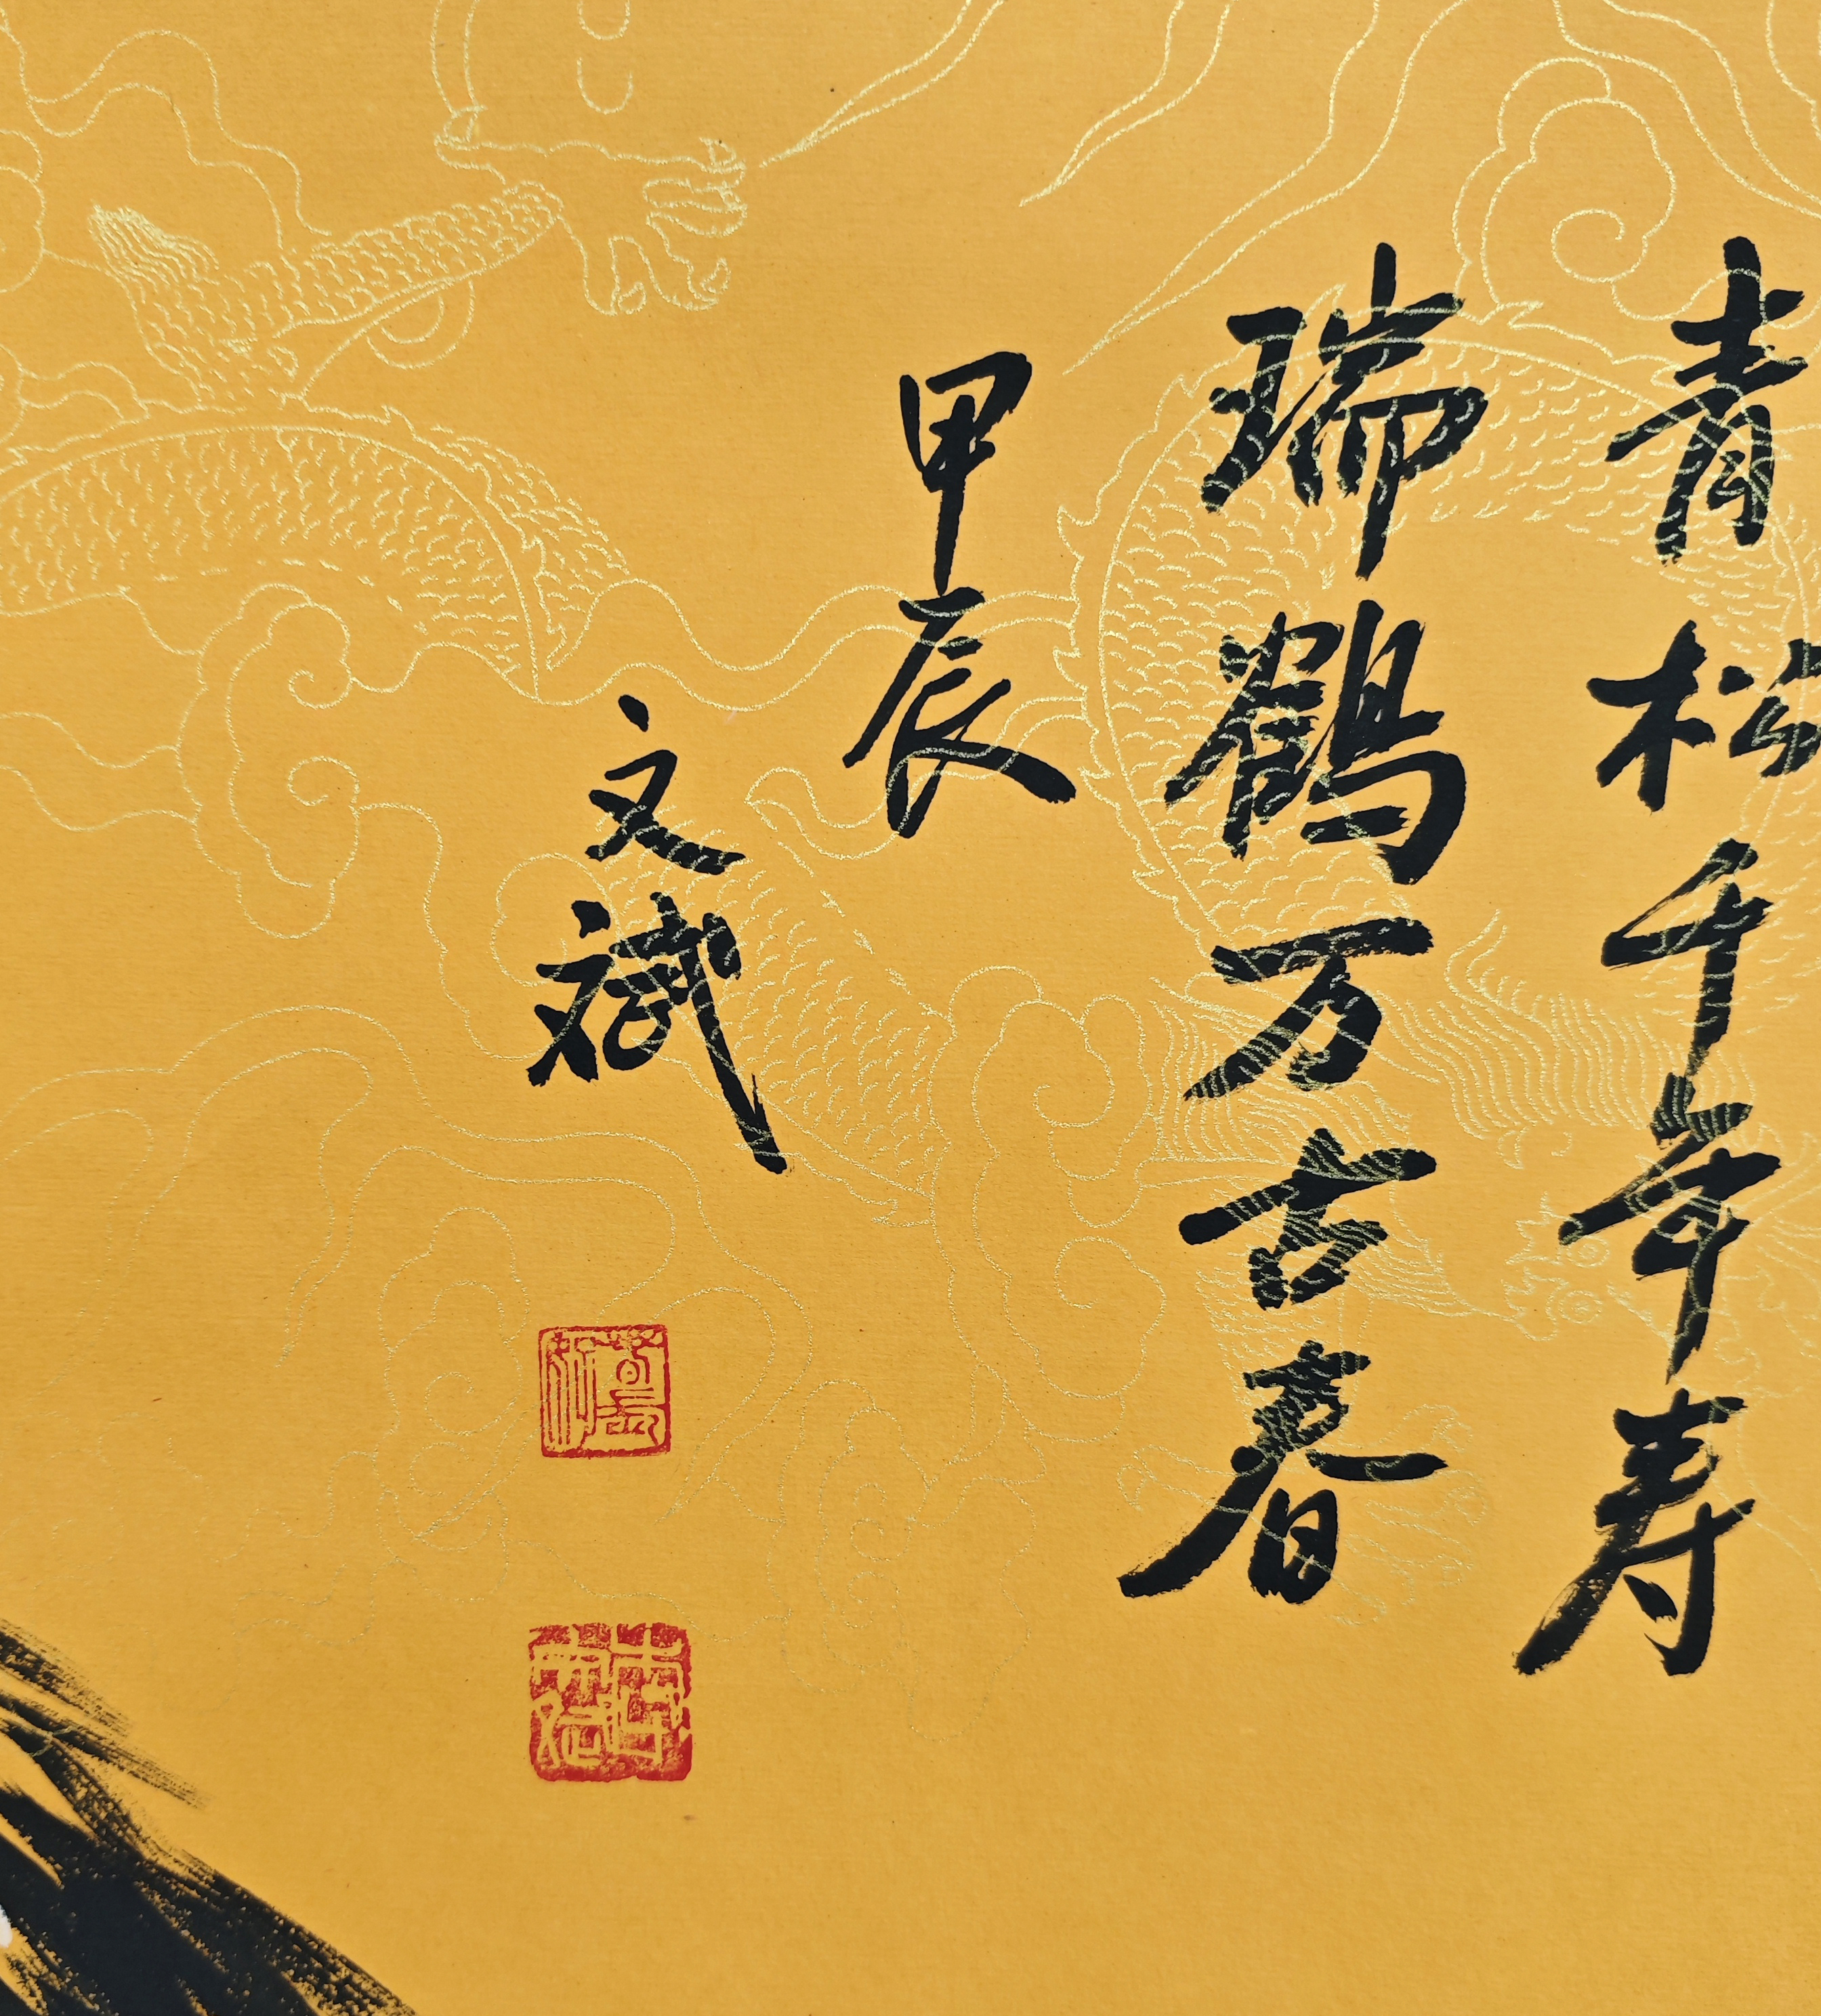 青松千年寿
瑞鹤万古春
甲辰
文斌